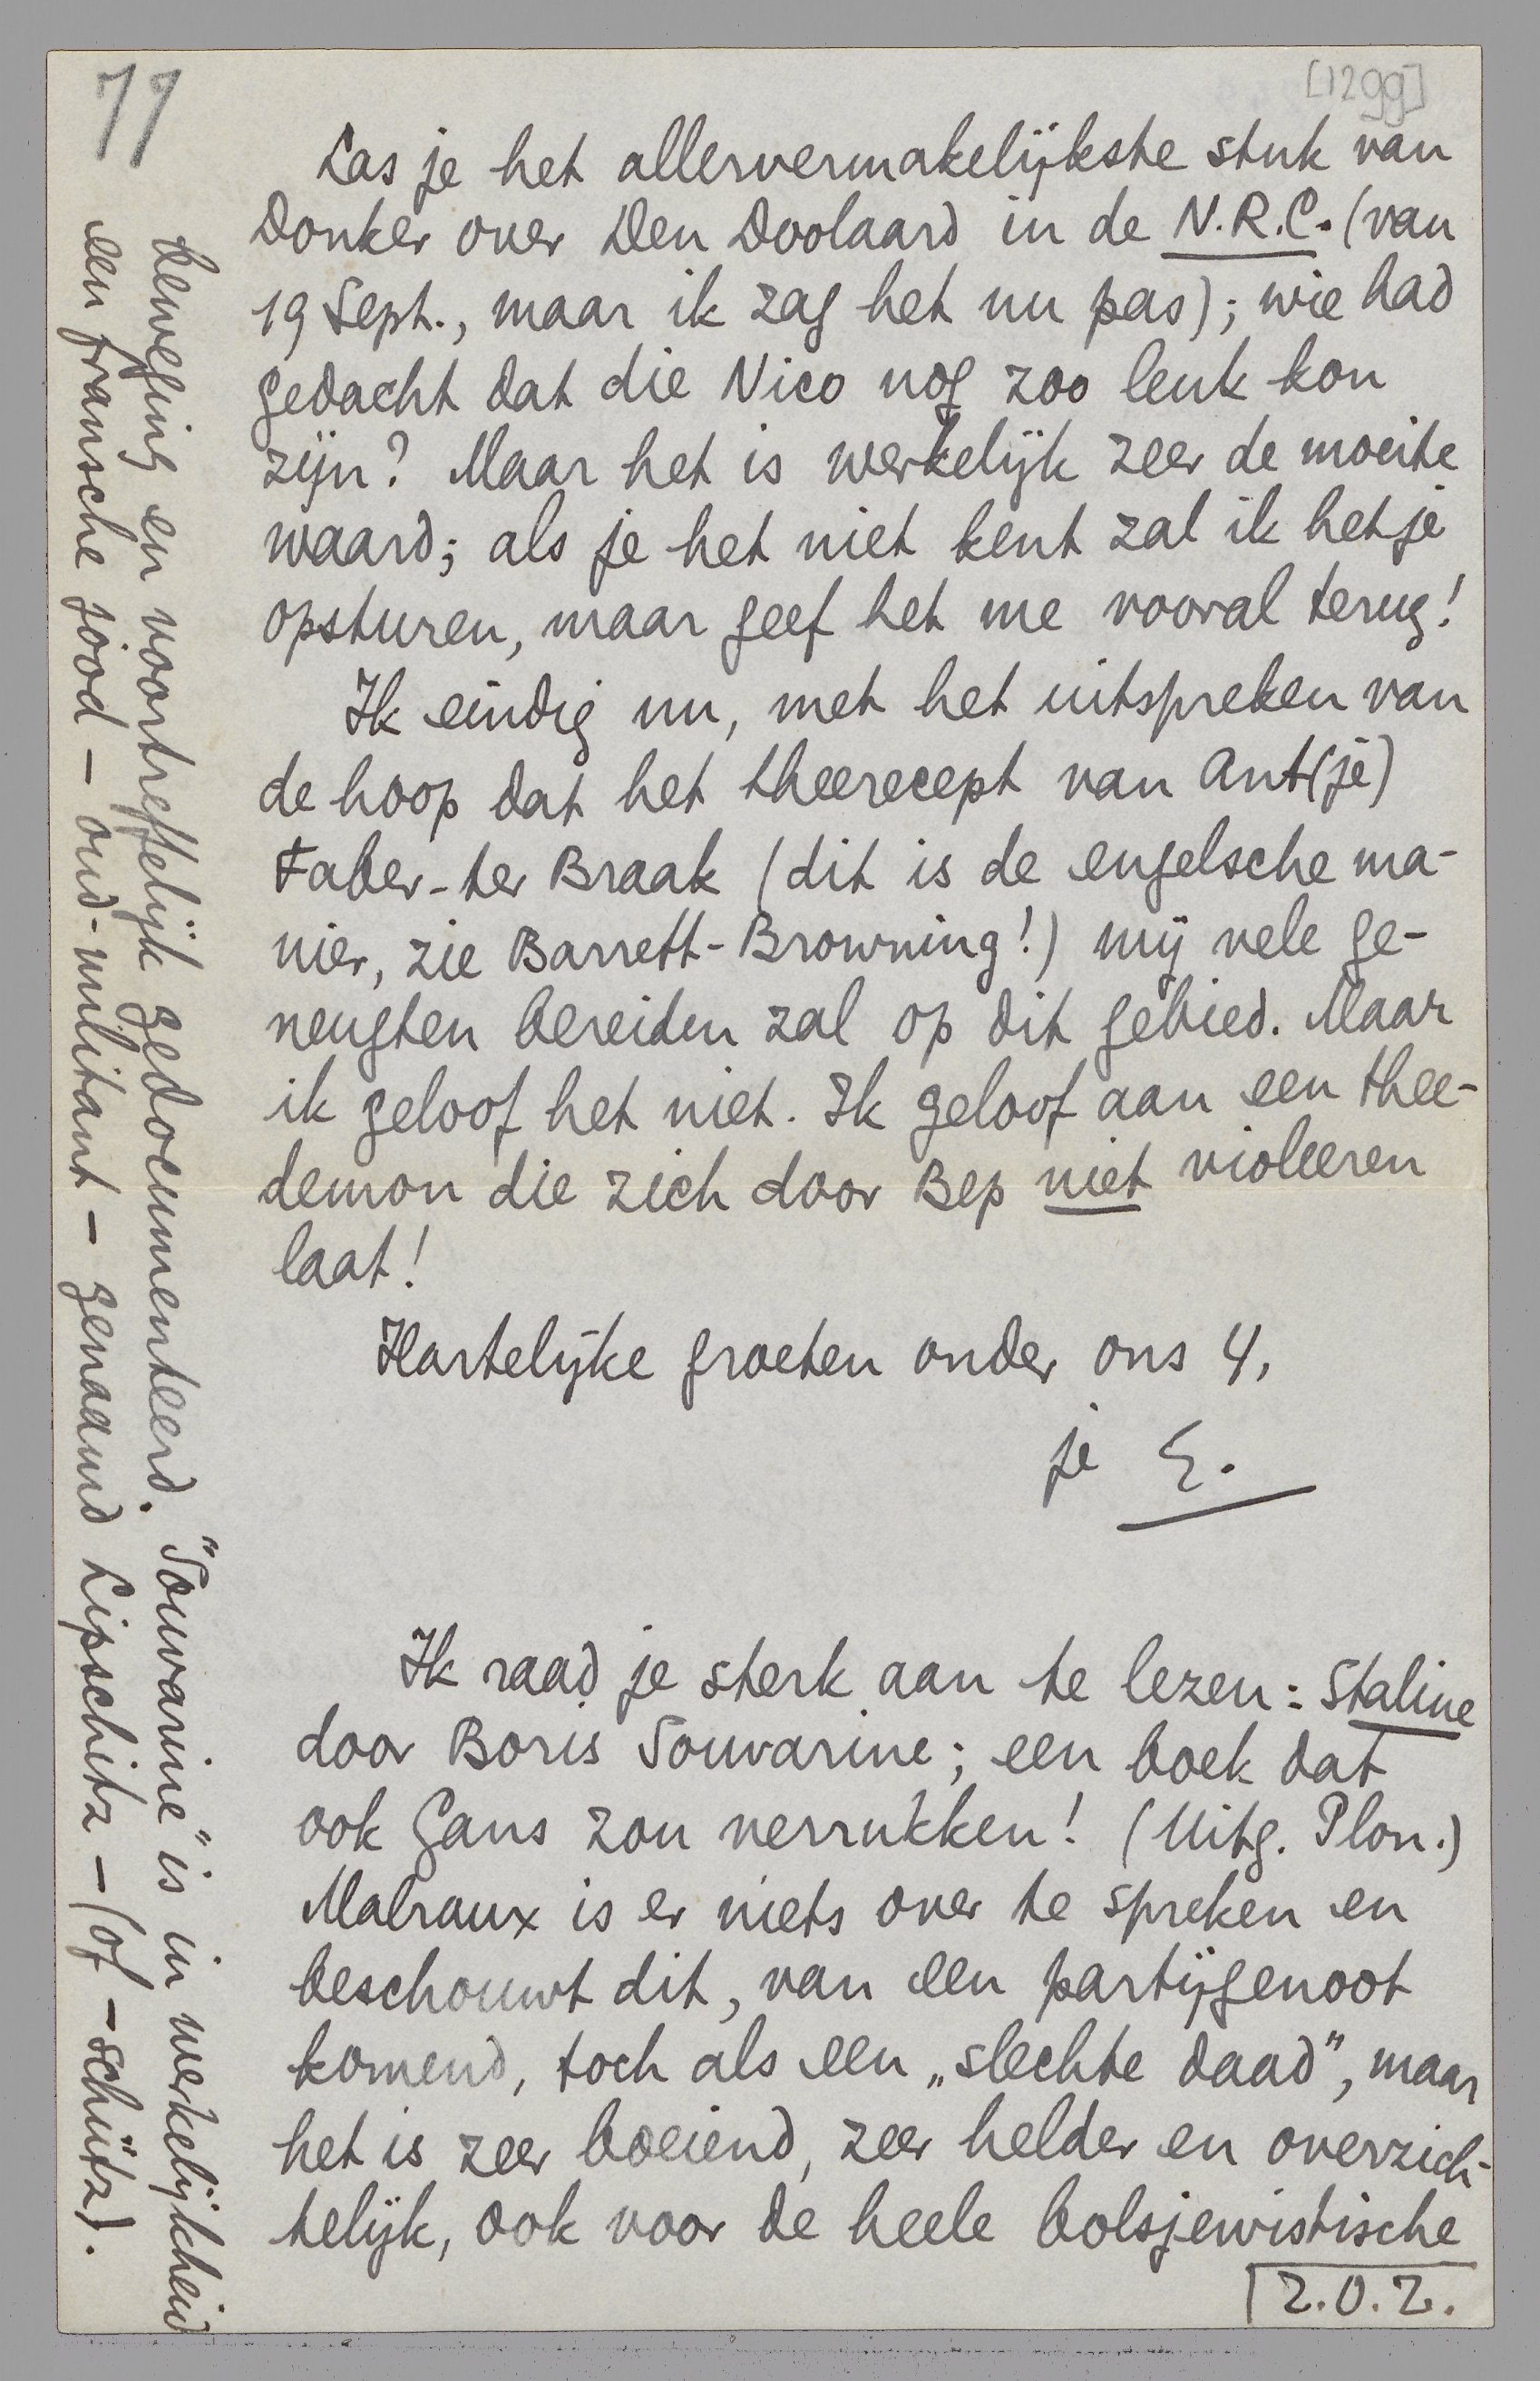 77
[1299]
Las je het allervermakelijkste stuk van
Donker over Den Doolaard in de N.R.C. (van
19 Sept., maar ik zag het nu pas); wie had
gedacht dat die Nico nog zoo leuk kon
zijn? Maar het is werkelijk zeer de moeite
waard; als je het niet kent zal ik het je
opsturen, maar geef het me vooral terug!
Ik eindig nu, met het uitspreken van
de hoop dat het theerecept van Ant(je)
Faber-ter Braak (dit is de engelsche ma-
nier, zie Barrett-Browning!) mij vele ge-
neugten bereiden zal op dit gebied. Maar
ik geloof het niet. Ik geloof aan een thee-
demon die zich door Bep niet violeeren
laat!
Hartelijke groeten onder ons 4,
je E.
Ik raad je sterk aan te lezen: Staline
door Boris Souvarine; een boek dat
ook Gans zou verrukken! (Uitg. Plon.)
Malraux is er niets over te spreken en
beschouwt dit, van een partijgenoot
komend, toch als een „slechte daad”, maar
het is zeer boeiend, zeer helder en overzich-
telijk, ook voor de heele bolsjewistische
Z.O.Z.
beweging en voortreffelijk gedocumenteerd. "Souvarine" is in werkelijkheid
een fransche jood – oud-militant – genaamd Lipschitz – (of –schütz).